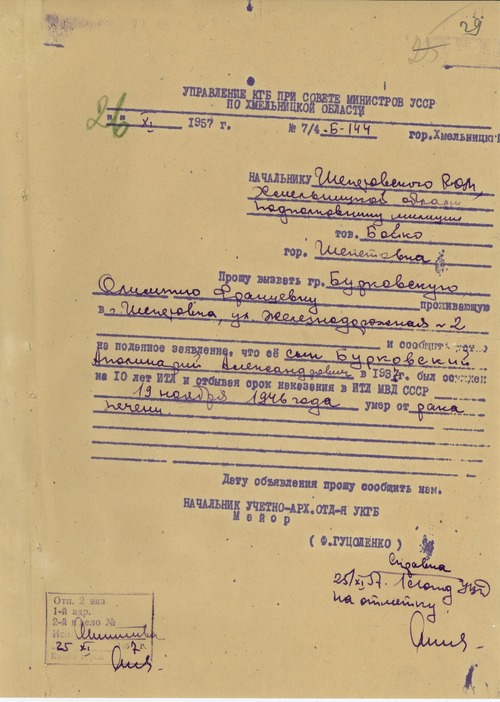 29
25
УПРАВЛЕНИЕ КГБ ПРИ СОВЕТЕ МИНИСТРОВ УССР
ПО ХМЕЛЬНИЦКОЙ ОБЛАСТИ
26
"" XI 1957 г. № 7/4-Б-144 гор.Хмельницкий
НАЧАЛЬНИКУ Шепетовского РОМ,
Хмельницкой области
подполковнику милиции
тов. Бойко
гор. Шепетовка
Прошу вызвать гр. Бурковскую
Олимпию Францевну проживающую
в г. Шепетовка, ул. Железнодорожная №2
и сообщить устно
на поданное заявление, что её сын Бурковский
Аполинарий Александрович в 1937г. был осужден
на 10 лет ИТЛ и отбывая срок наказания в ИТЛ МВД СССР
19 ноября 1946 года умер от рака
печени.
Дату объявления прошу сообщить нам.
НАЧАЛЬНИК УЧЕТНО-АРХ.ОТД-Я УКГБ
Майор
(Ф.ГУЦОЛЕНКО)
Справка
25/XI 57.
на отметку
Отп. 2 экз
1-й адр.
2-й в дело №
Исп.
25 XI 57г.